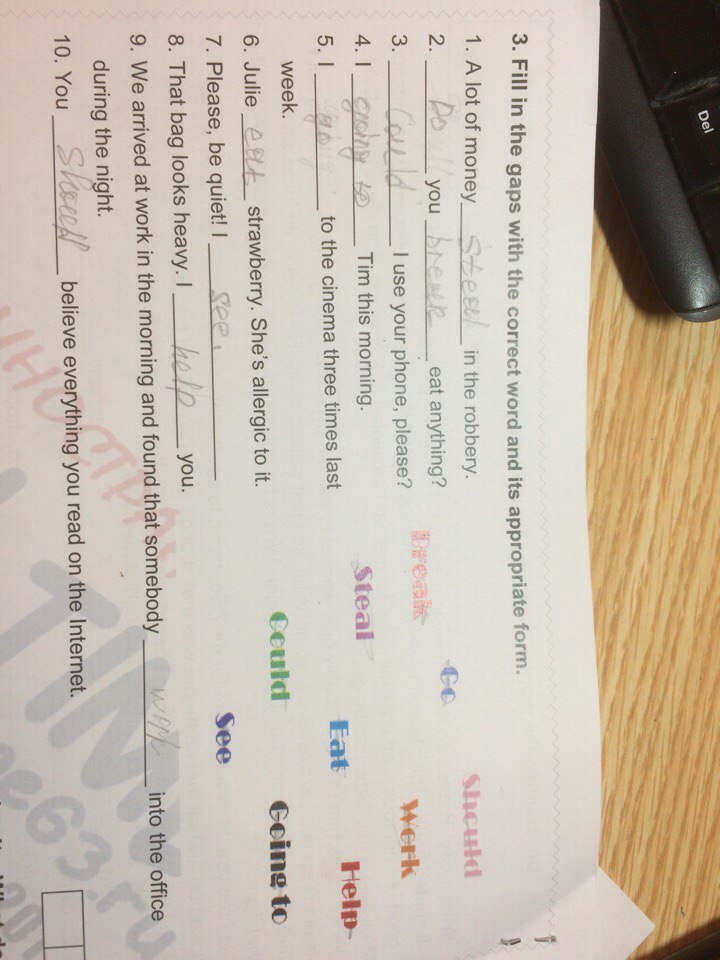 3. Fill in the gaps with the correct word and its appropriate form.
1. A lot of money Steal in the robbery.
2. Do you break eat anything?
3. Could I use your phone, please?
4. I going to Tim this morning.
5. I go to the cinema three times last
week.
6. Julie eat strawberry. She's allergic to it.
7. Please, be quiet! I see.
8. That bag looks heavy. I help you.
9. We arrived at work in the morning and found that somebody work into the office
during the night.
10. You should believe everything you read on the Internet.
Should
Go
Break
Work
Steal
Help
Eat
Could
Going to
See
Del